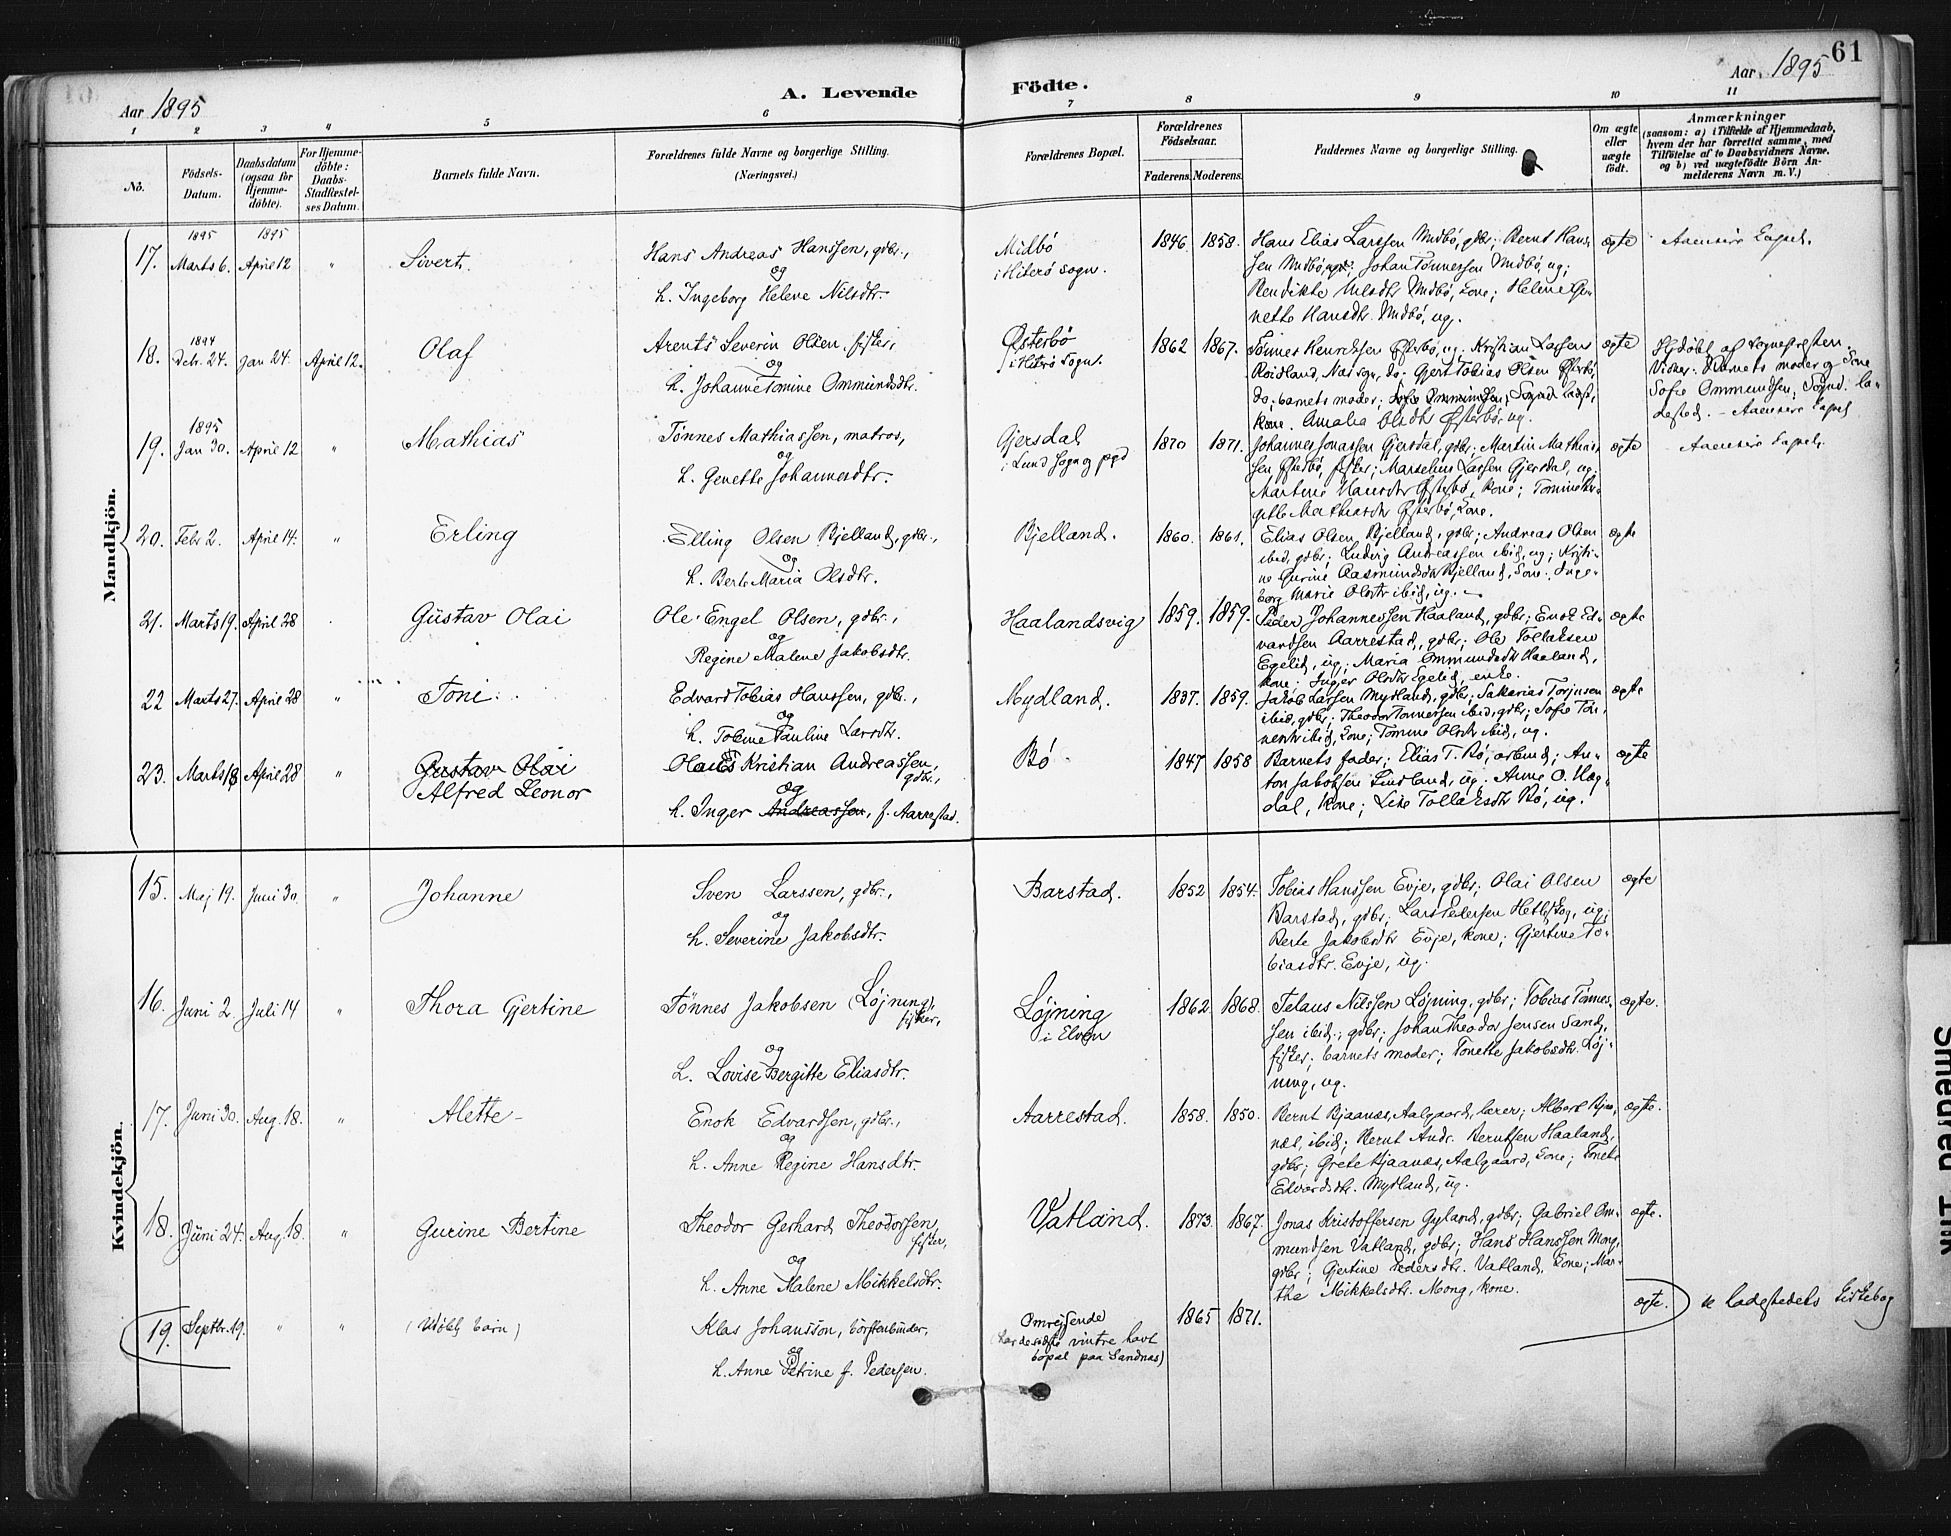 61
Aar 1895
A. Levende Födte.
Aar 1895
1 2 3 4 5 6 7 8 9 10 11
No.
Födsels-Datum.
Daabsdatum (ogsaa for Hjemmedöbte).
For Hjemmedöbte: Daabs-Stadfæstelses Datum.
Barnets fulde Navn.
Forældrenes fulde Navne og borgerlige Stilling.
(Næringsvei.)
Forældrenes Bopæl.
Forældrenes Födselsaar.
Faderens. Moderens.
Faddernes Navne og borgerlige Stilling.
Om ægte eller uægte födt.
Anmærkninger
(saasom: a) i Tilfælde af Hjemmedaab,
hvem der har forrettet samme, med
Tilföielse af to Daabsvidners Navne,
og b) ved uægtefödte Börn An-
melderens Navn m. V.)
Mandkjön.
1895 1895
17. Marts 6. April 12 " Sivert. Hans Andreas Hanssen, gdbr.,
og
h. Ingeborg Helene Nilsdtr.
Midbö
i Hiterö Sogn.
1846. 1858.
Hans Elias Larssen Midbö, gdbr; Bernt Hans-
sen Midbö, ; Johan Tönnessen Midbö, ug;
Bendikte Nilsdtr Midbö, kone; Helene Ge-
nette Hansdtr Midbö, ug.
ægte
Aaensire Kapel.
1894
18. Debr. 24. Jan 24. April 12. Olaf
Arents Severin Olsen, fisker,
og
h. Johanne Tomine Ommundsdtr.
Österbö
i Hiterö Sogn.
1862 1867.
Tönnes Henriksen Österbö, ug, Kristian Larsen
Roidland, Næs sgn, do. Gjert Tobias Olsen Österbö,
do; barnets moder; Sofie Ommundsen, Sogndal Ladest,
kone. Amalia Olsdtr Österbö, ug.
ægte
Hjdöbt af Sognepresten.
Vidner: Barnets moder og kone
Sofie Ommundsen, Sognd. la-
dested. – Aaensire Kapel
1895
19. Jan 30. April 12 " Mathias
Tönnes Mathiassen, matros,
og
h. Genette Johannesdtr.
Gjersdal
i Lund Sogn og pgd
1870 1871.
Johannes Jonassen Gjersdal, gdbr; Martin Mathias-
sen Österbö, fisker; Marselius Larsen Gjersdal, ug;
Martine Hansdtr Österbö, kone; Tomine Bir-
gitte Mathiasdtr Österbö, kone.
ægte
Aaensire Kapel.
20. Febr 2. April 14. " Erling
Elling Olsen Bjelland, gdbr.,
og
h. Berte Maria Olsdtr.
Bjelland.
1860. 1861.
Elias Olsen Bjelland, gdbr; Andreas Olsen
ibid, gdbr; Ludvig Andreassen ibid, ug; Kristi-
ne Gurine Aasmundsdtr Bjelland, kone; Inge-
borg Marie Olsdtr ibid, ug.
ægte
21. Marts 19. April 28 Gustav Olai
Ole Engel Olsen, gdbr.,
og
Regine Malene Jakobsdtr.
Haalandsvig
1859. 1859.
Peder Johannessen Haaland, gdbr; Enok Ed-
vardsen Aarrestad, gdbr; Ole Tollaksen
Egelid, ug; Maria Ommundsdtr Haaland,
kone. Inger Olsdtr Egelid, enke.
ægte
22 Marts 27. April 28 " Toni
Edvard Tobias Hanssen, gdbr.,
og
h. Tobine Pauline Larsdtr.
Mydland.
1837. 1859.
Jakob Larsen Mydland, gdbr; Sakarias Torjusen
ibid, gdbr; Theodor Tönnessen ibid, gdbr; Sofie Tön-
nesdtr ibid, kone; Tomine Olsdtr ibid, ug.
ægte
23. Marts 18 April 28 " Gustav Olai
Alfred Leonor
Olaus Kristian Andreassen,
gdbr.,
og
h. Inger Andreassen, f. Aarrestad.
Bö
1847 1858
Barnets fader; Elias T. Bö, arbmd; An-
ton Jakobsen Lindland, ug. Anne O. Hæg-
dal, kone; Lise Tollaksdtr Bö, ug.
ægte
Kvindekjön.
15. Maj 19. Juni 30. " Johanne
Sven Larssen, gdbr.,
og
h. Severine Jakobsdtr.
Barstad.
1852 1854.
Tobias Hanssen Evje, gdbr; Olai Olsen
Barstad, gdbr; Lars Pedersen Hetleskog, ug;
Berte Jakobsdtr Evje, kone; Gjertine To-
biasdtr. Evje, ug.
ægte
16. Juni 2. Juli 14 " Thora Gjertine
Tönnes Jakobsen (Löjning),
fisker,
og
h. Lovise Bergitte Eliasdtr.
Löjning
i Elven
1862 1868.
Telaus Nilssen Löjning, gdbr; Tobias Tönnes-
sen ibid., gdbr; Johan Theodor Jensen Sand,
fisker; barnets moder; Tonette Jakobsdtr. Löj-
ning, ug.
ægte.
17. Juni 30. Aug. 18. " Alette
Enok Edvardsen, gdbr.,
og
h. Anne Regine Hansdtr.
Aarrestad.
1858. 1850.
Bernt Bjaanæs, Aalgaard, lærer; Albert Bjaa-
næs, ibid; Bernt Andr. Berntsen Haaland,
gdbr; Grete Bjaanæs, Aalgaard, kone; Tonette
Edvardsdtr. Mydland, ug.
ægte.
18. Juni 24. Aug. 18. " Gurine Bertine
Theodor Gerhard Theodorsen,
fisker,
og
h. Anne Malene Mikkelsdtr.
Vatland.
1873. 1867.
Jonas Kristoffersen Gyland, gdbr; Gabriel Om-
mundsen Vatland, gdbr; Hans Hanssen Mong,
gdbr; Gjertine Pedersdtr. Vatland, kone; Mar-
the Mikkelsdtr. Mong, kone.
ægte.
19. Septbr. 19. " " (Udöbt barn)
Klas Johansson, börstenbinder,
og
h. Anne Petrine f. Pedersen.
Omreisende
(har de sidste vintre havt
bopæl paa Sandnæs)
1865 1871.
ægte.
se ladestedets kirkebog